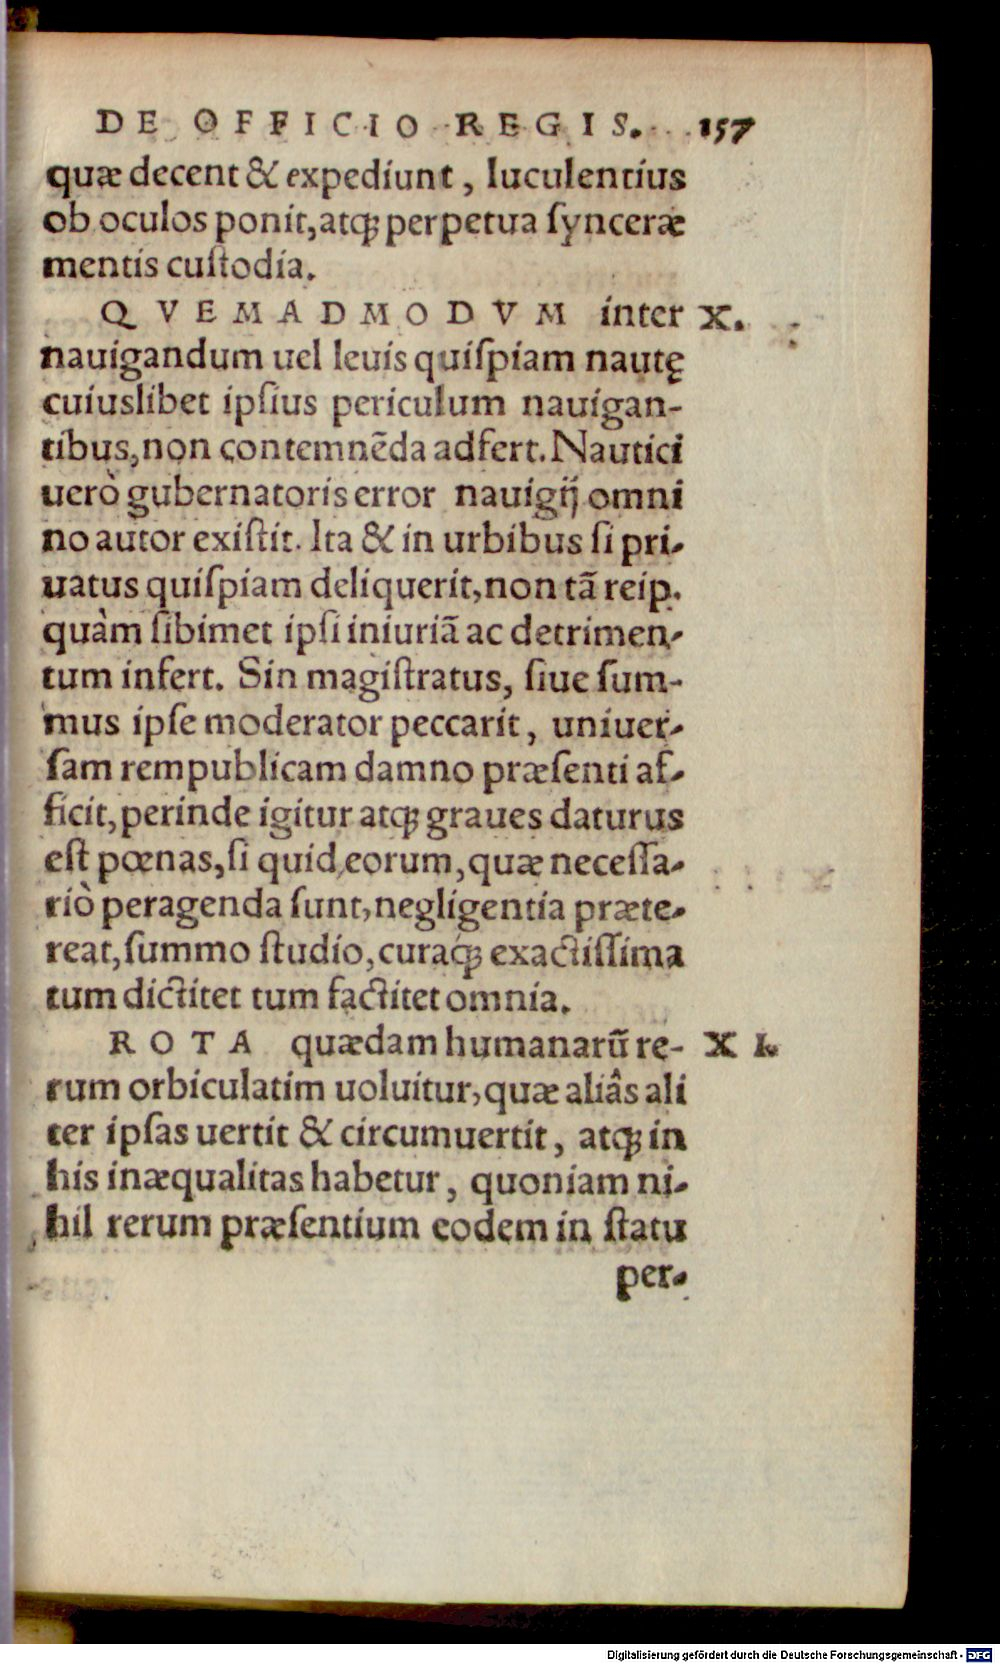 DE OFFICIO REGIS. 157
quæ decent & expediunt, luculentius
ob oculos ponit, atq; perpetua ſynceræ
mentis cuſtodia.
QVEMADMODVM inter X.
nauigandum uel leuis quiſpiam nautę
cuiuslibet ipſius periculum nauigan-
tibus, non contemnẽda adfert. Nautici
uerò gubernatoris error nauigij omni
no autor exiſtit. Ita & in urbibus ſi pri-
uatus quiſpiam deliquerit, non tã reip.
quàm ſibimet ipſi iniuriã ac detrimen-
tum infert. Sin magiſtratus, ſiue ſum-
mus ipſe moderator peccarit, uniuer-
ſam rempublicam damno præſenti af-
ficit, perinde igitur atq; graues daturus
eſt pœnas, ſi quid eorum, quæ neceſſa-
riò peragenda ſunt, negligentia præte-
reat, ſummo ſtudio, curaq́; exactiſſima
tum dictitet tum factitet omnia.
ROTA quædam humanarũ re- XI.
rum orbiculatim uoluitur, quæ aliâs ali
ter ipſas uertit & circumuertit, atq; in
his inæqualitas habetur, quoniam ni-
hil rerum præſentium eodem in ſtatu
per-
Digitalisierung gefördert durch die Deutsche Forschungsgemeinschaft - DFG